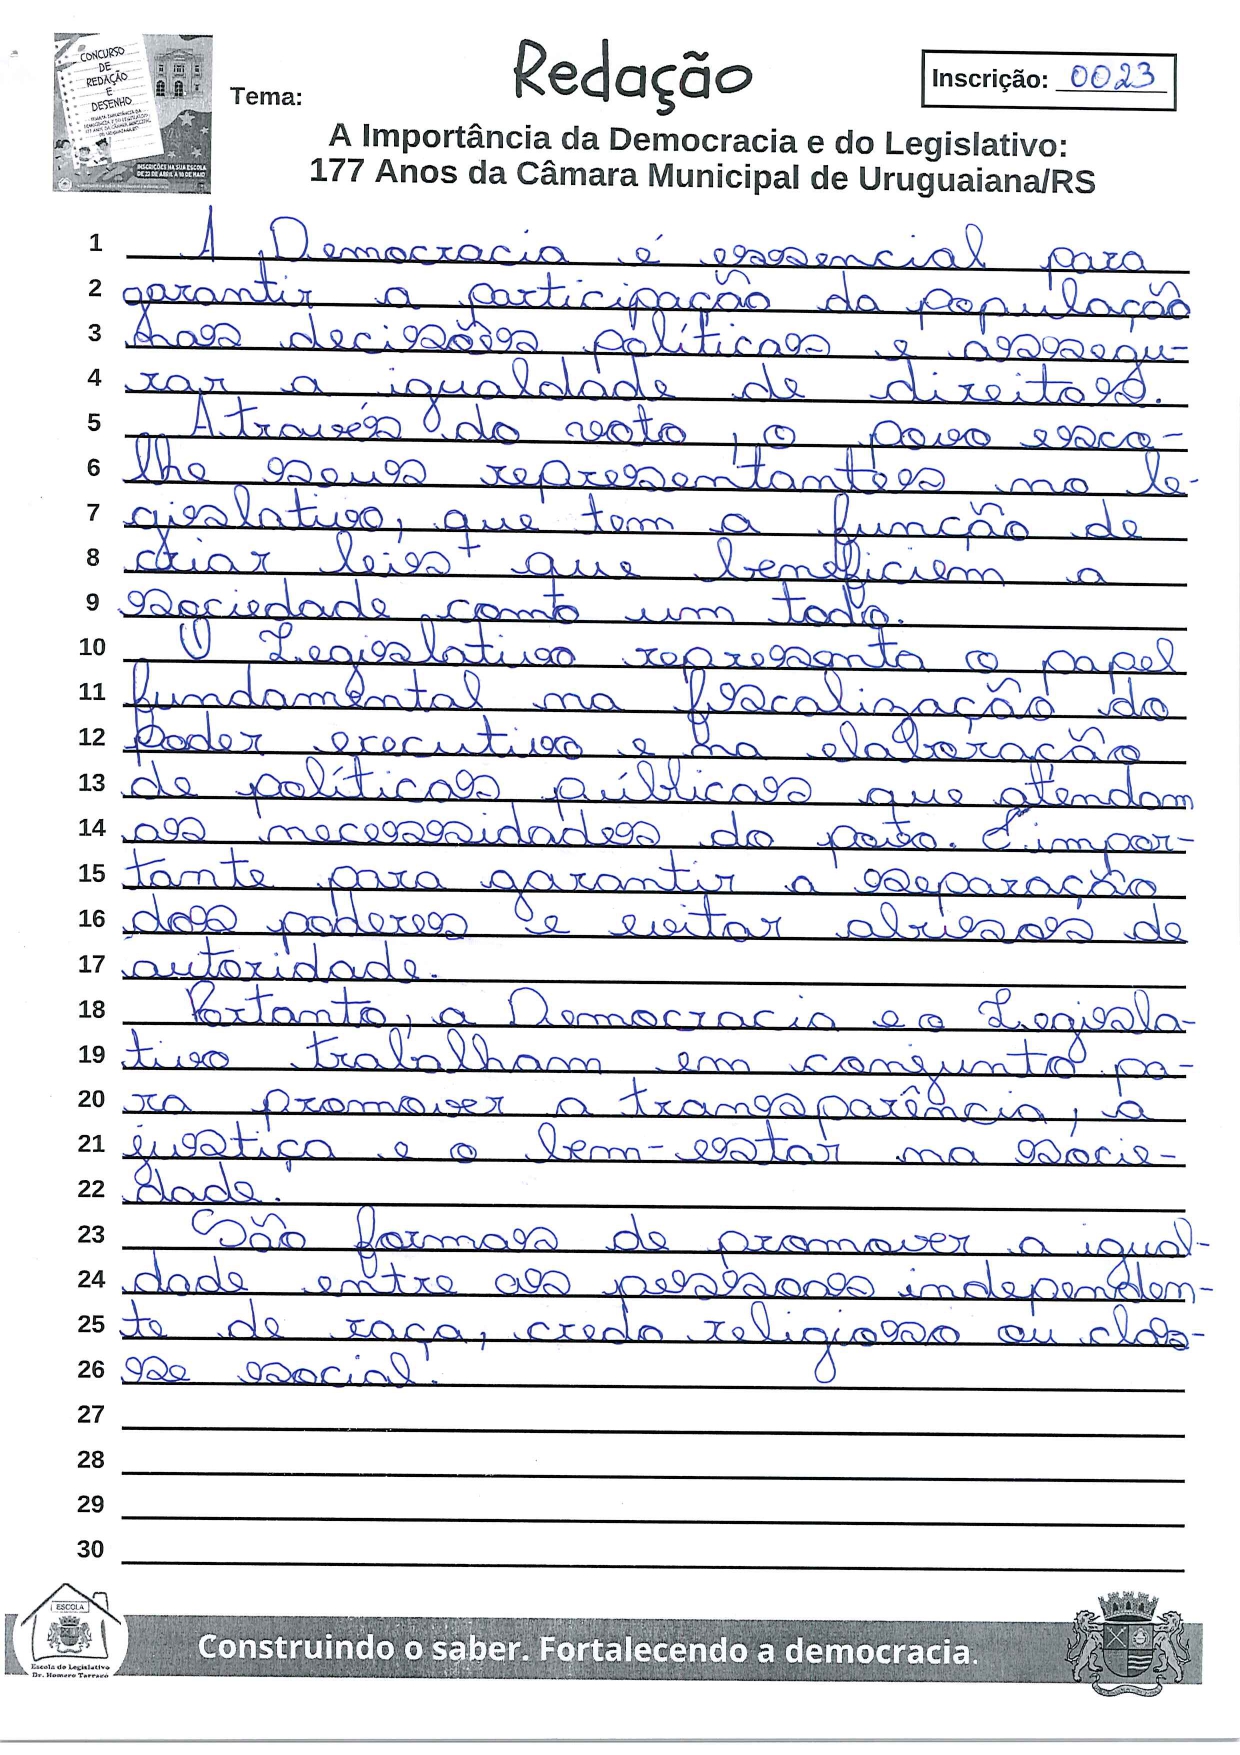 CONCURSO
DE
REDAÇÃO
E
DESENHO
INSCRIÇÕES NA SUA ESCOLA
DE 22 DE ABRIL A 10 DE MAIO
Redação
Inscrição: 0023
Tema:
A Importância da Democracia e do Legislativo:
177 Anos da Câmara Municipal de Uruguaiana/RS
1 A Democracia é essencial para
2 garantir a participação da população
3 nas decisões políticas e assegu-
4 rar a igualdade de direitos.
5 Através do voto, o povo esco-
6 lhe seus representantes no le-
7 gislativo, que tem a função de
8 criar leis que beneficiem a
9 sociedade como um todo.
10 O Legislativo representa o papel
11 fundamental na fiscalização do
12 poder executivo e na elaboração
13 de políticas públicas que atendam
14 as necessidades do povo. É impor-
15 tante para garantir a separação
16 dos poderes e evitar abusos de
17 autoridade.
18 Portanto, a Democracia e o Legisla-
19 tivo trabalham em conjunto pa-
20 ra promover a transparência, a
21 justiça e o bem-estar na socie-
22 dade.
23 São formas de promover a igual-
24 dade entre as pessoas independen-
25 te de raça, credo religioso ou clas-
26 se social.
27
28
29
30
ESCOLA
Escola do Legislativo
Dr. Homero Tarragó
Construindo o saber. Fortalecendo a democracia.